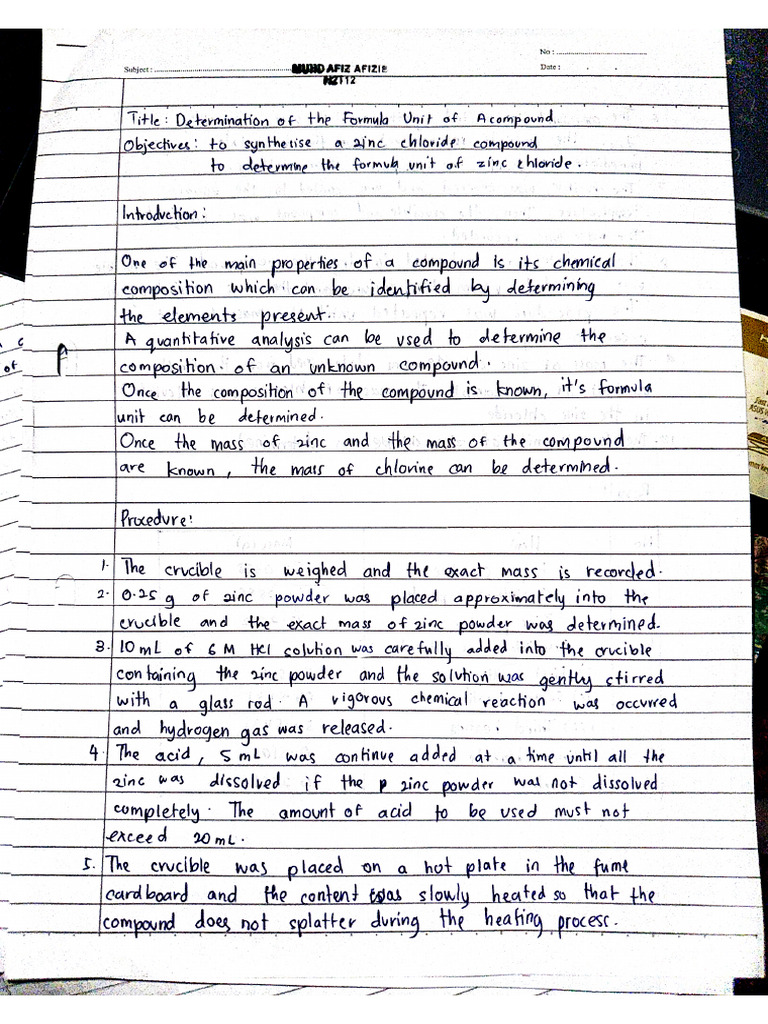 No :
Subject : MUHD AFIZ AFIZIE Date :
H2T12
Title: Determination of the Formula Unit of A compound
Objectives: to synthesise a zinc chloride compound
to determine the formula unit of zinc chloride.
Introduction:
One of the main properties of a compound is its chemical
composition which can be identified by determining
the elements present.
A quantitative analysis can be used to determine the
composition of an unknown compound.
Once the composition of the compound is known, it's formula
unit can be determined.
Once the mass of zinc and the mass of the compound
are known, the mass of chlorine can be determined.
Procedure:
1. The crucible is weighed and the exact mass is recorded.
2. 0.25 g of zinc powder was placed approximately into the
crucible and the exact mass of zinc powder was determined.
3. 10 mL of 6 M HCl solution was carefully added into the crucible
containing the zinc powder and the solution was gently stirred
with a glass rod. A vigorous chemical reaction was occurred
and hydrogen gas was released.
4. The acid, 5 mL was continue added at a time until all the
zinc was dissolved if the zinc powder was not dissolved
completely. The amount of acid to be used must not
exceed 20 mL.
5. The crucible was placed on a hot plate in the fume
cardboard and the content was slowly heated so that the
compound does not splatter during the heating process.